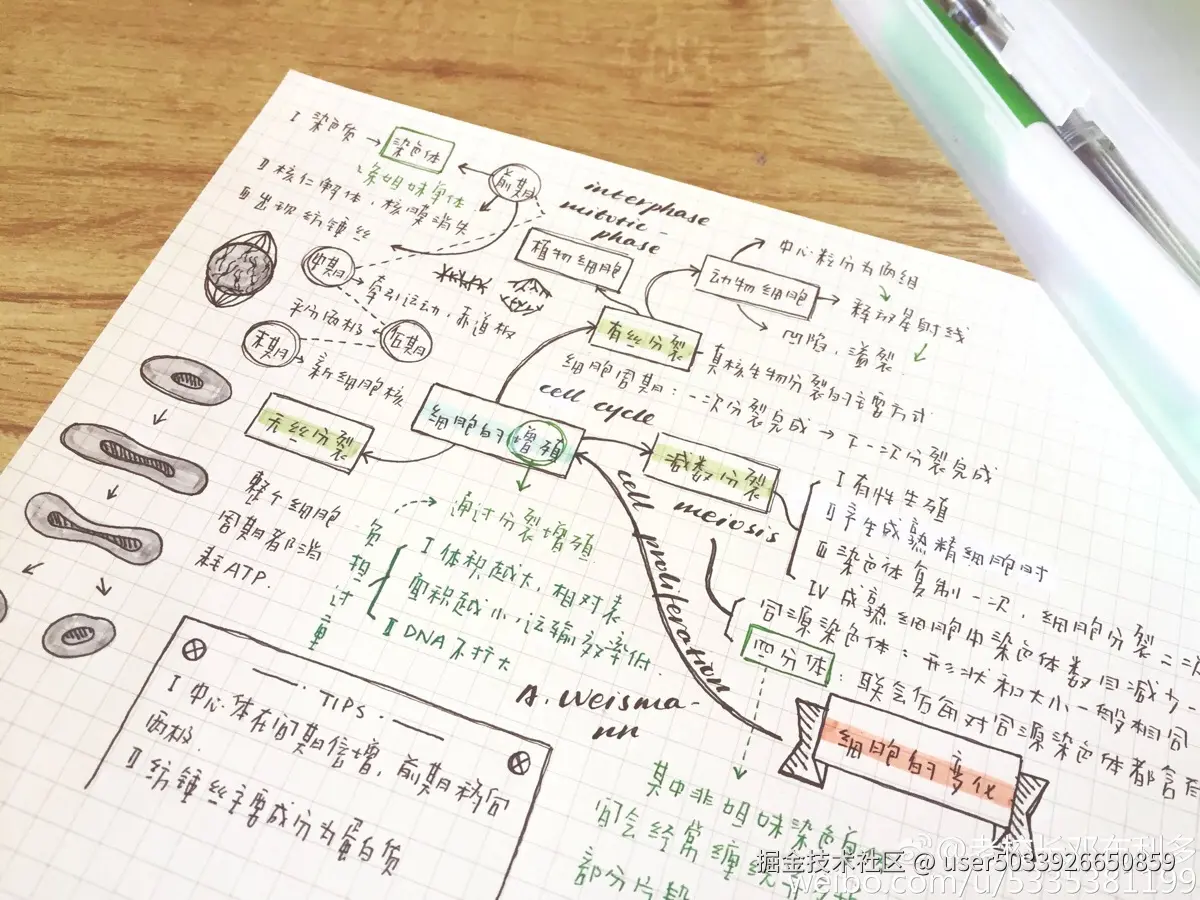 I 染色质 → 染色体
2条姐妹单体
II 核仁解体,核膜消失
III 出现纺锤丝
前期
中期
牵引运动,赤道板
平分两极
后期
末期
新细胞核
interphase
mitotic-
phase
植物细胞
动物细胞
中心粒分为两组
释放星射线
凹陷,溢裂
有丝分裂
真核生物分裂的主要方式
细胞周期:一次分裂完成 → 下一次分裂完成
cell cycle
细胞的增殖
无丝分裂
减数分裂
meiosis
I 有性生殖
II 产生成熟精细胞时
III 染色体复制一次,细胞分裂二次
IV 成熟细胞中染色体数目减少一
同源染色体:形状和大小一般相同
四分体:联会后每对同源染色体都含有
整个细胞
周期都消
耗ATP.
通过分裂增殖
负担过重
I 体积越大,相对表
面积越小,运输效率低
II DNA不扩大
cell proliferation
A. Weisma-
nn
细胞的变化
TIPS
I 中心体在间期倍增,前期移向
两极.
II 纺锤丝主要成分为蛋白质
其中非姐妹染色
间会经常缠绕
部分片段
掘金技术社区 @ user5033926650859
weibo.com/u/5335381199